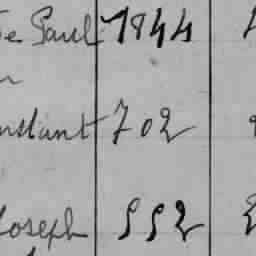 de Paul 1844
nstant 702
Joseph 552